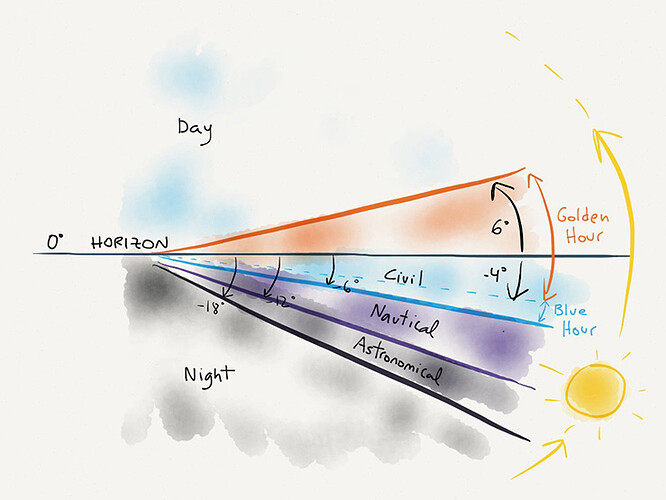 Day
6°
Golden
Hour
0° HORIZON
Civil
-4°
-6°
-18°
-12°
Nautical
Blue
Hour
Astronomical
Night